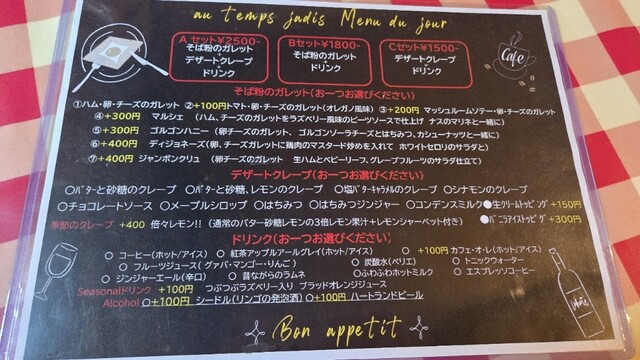 au temps jadis Menu du jour
Aセット¥2500-
そば粉のガレット
+
デザートクレープ
+
ドリンク
Bセット¥1800-
そば粉のガレット
+
ドリンク
Cセット¥1500-
デザートクレープ
+
ドリンク
Cafe
そば粉のガレット(お一つお選びください)
①ハム・卵・チーズのガレット ②+100円トマト・卵・チーズのガレット(オレガノ風味) ③+200円 マッシュルームソテー・卵・チーズのガレット
④+300円 マルシェ (ハム、チーズのガレットをラズベリー風味のビーツソースで仕上げ ナスのマリネと一緒に)
⑤+300円 ゴルゴンハニー (卵チーズのガレット、ゴルゴンゾーラチーズとはちみつ、カシューナッツと一緒に)
⑥+400円 ディジョネーズ(卵、チーズガレットに鶏肉のマスタード炒めを入れて ホワイトセロリのサラダと)
⑦+400円 ジャンボンクリュ (卵チーズのガレット 生ハムとベビーリーフ、グレープフルーツのサラダ仕立て)
デザートクレープ(お一つお選びください)
○バターと砂糖のクレープ ○バターと砂糖、レモンのクレープ ○塩バターキャラメルのクレープ ○シナモンのクレープ
○チョコレートソース ○メープルシロップ ○はちみつ ○はちみつジンジャー ○コンデンスミルク●生クリームトッピング+150円
季節のクレープ +400 倍々レモン!! (通常のバター砂糖レモンの3倍レモン果汁+レモンシャーベット付き) ●バニラアイストッピング+300円
ドリンク(お一つお選びください)
○ コーヒー(ホット/アイス) ○ 紅茶アップルアールグレイ(ホット/アイス) ○ +100円カフェ・オ・レ(ホット/アイス)
○ フルーツジュース( グァバ・マンゴー・りんご ) ○ 炭酸水(ペリエ) ○ トニックウォーター
○ ジンジャーエール(辛口) ○ 昔ながらのラムネ ○ふわふわホットミルク ○ エスプレッソコーヒー
Seasonalドリンク +100円 つぶつぶラズベリー入り ブラッドオレンジジュース
Alcohol ○+100円 シードル(リンゴの発泡酒) ○+100円 ハートランドビール
Wine
Bon appetit